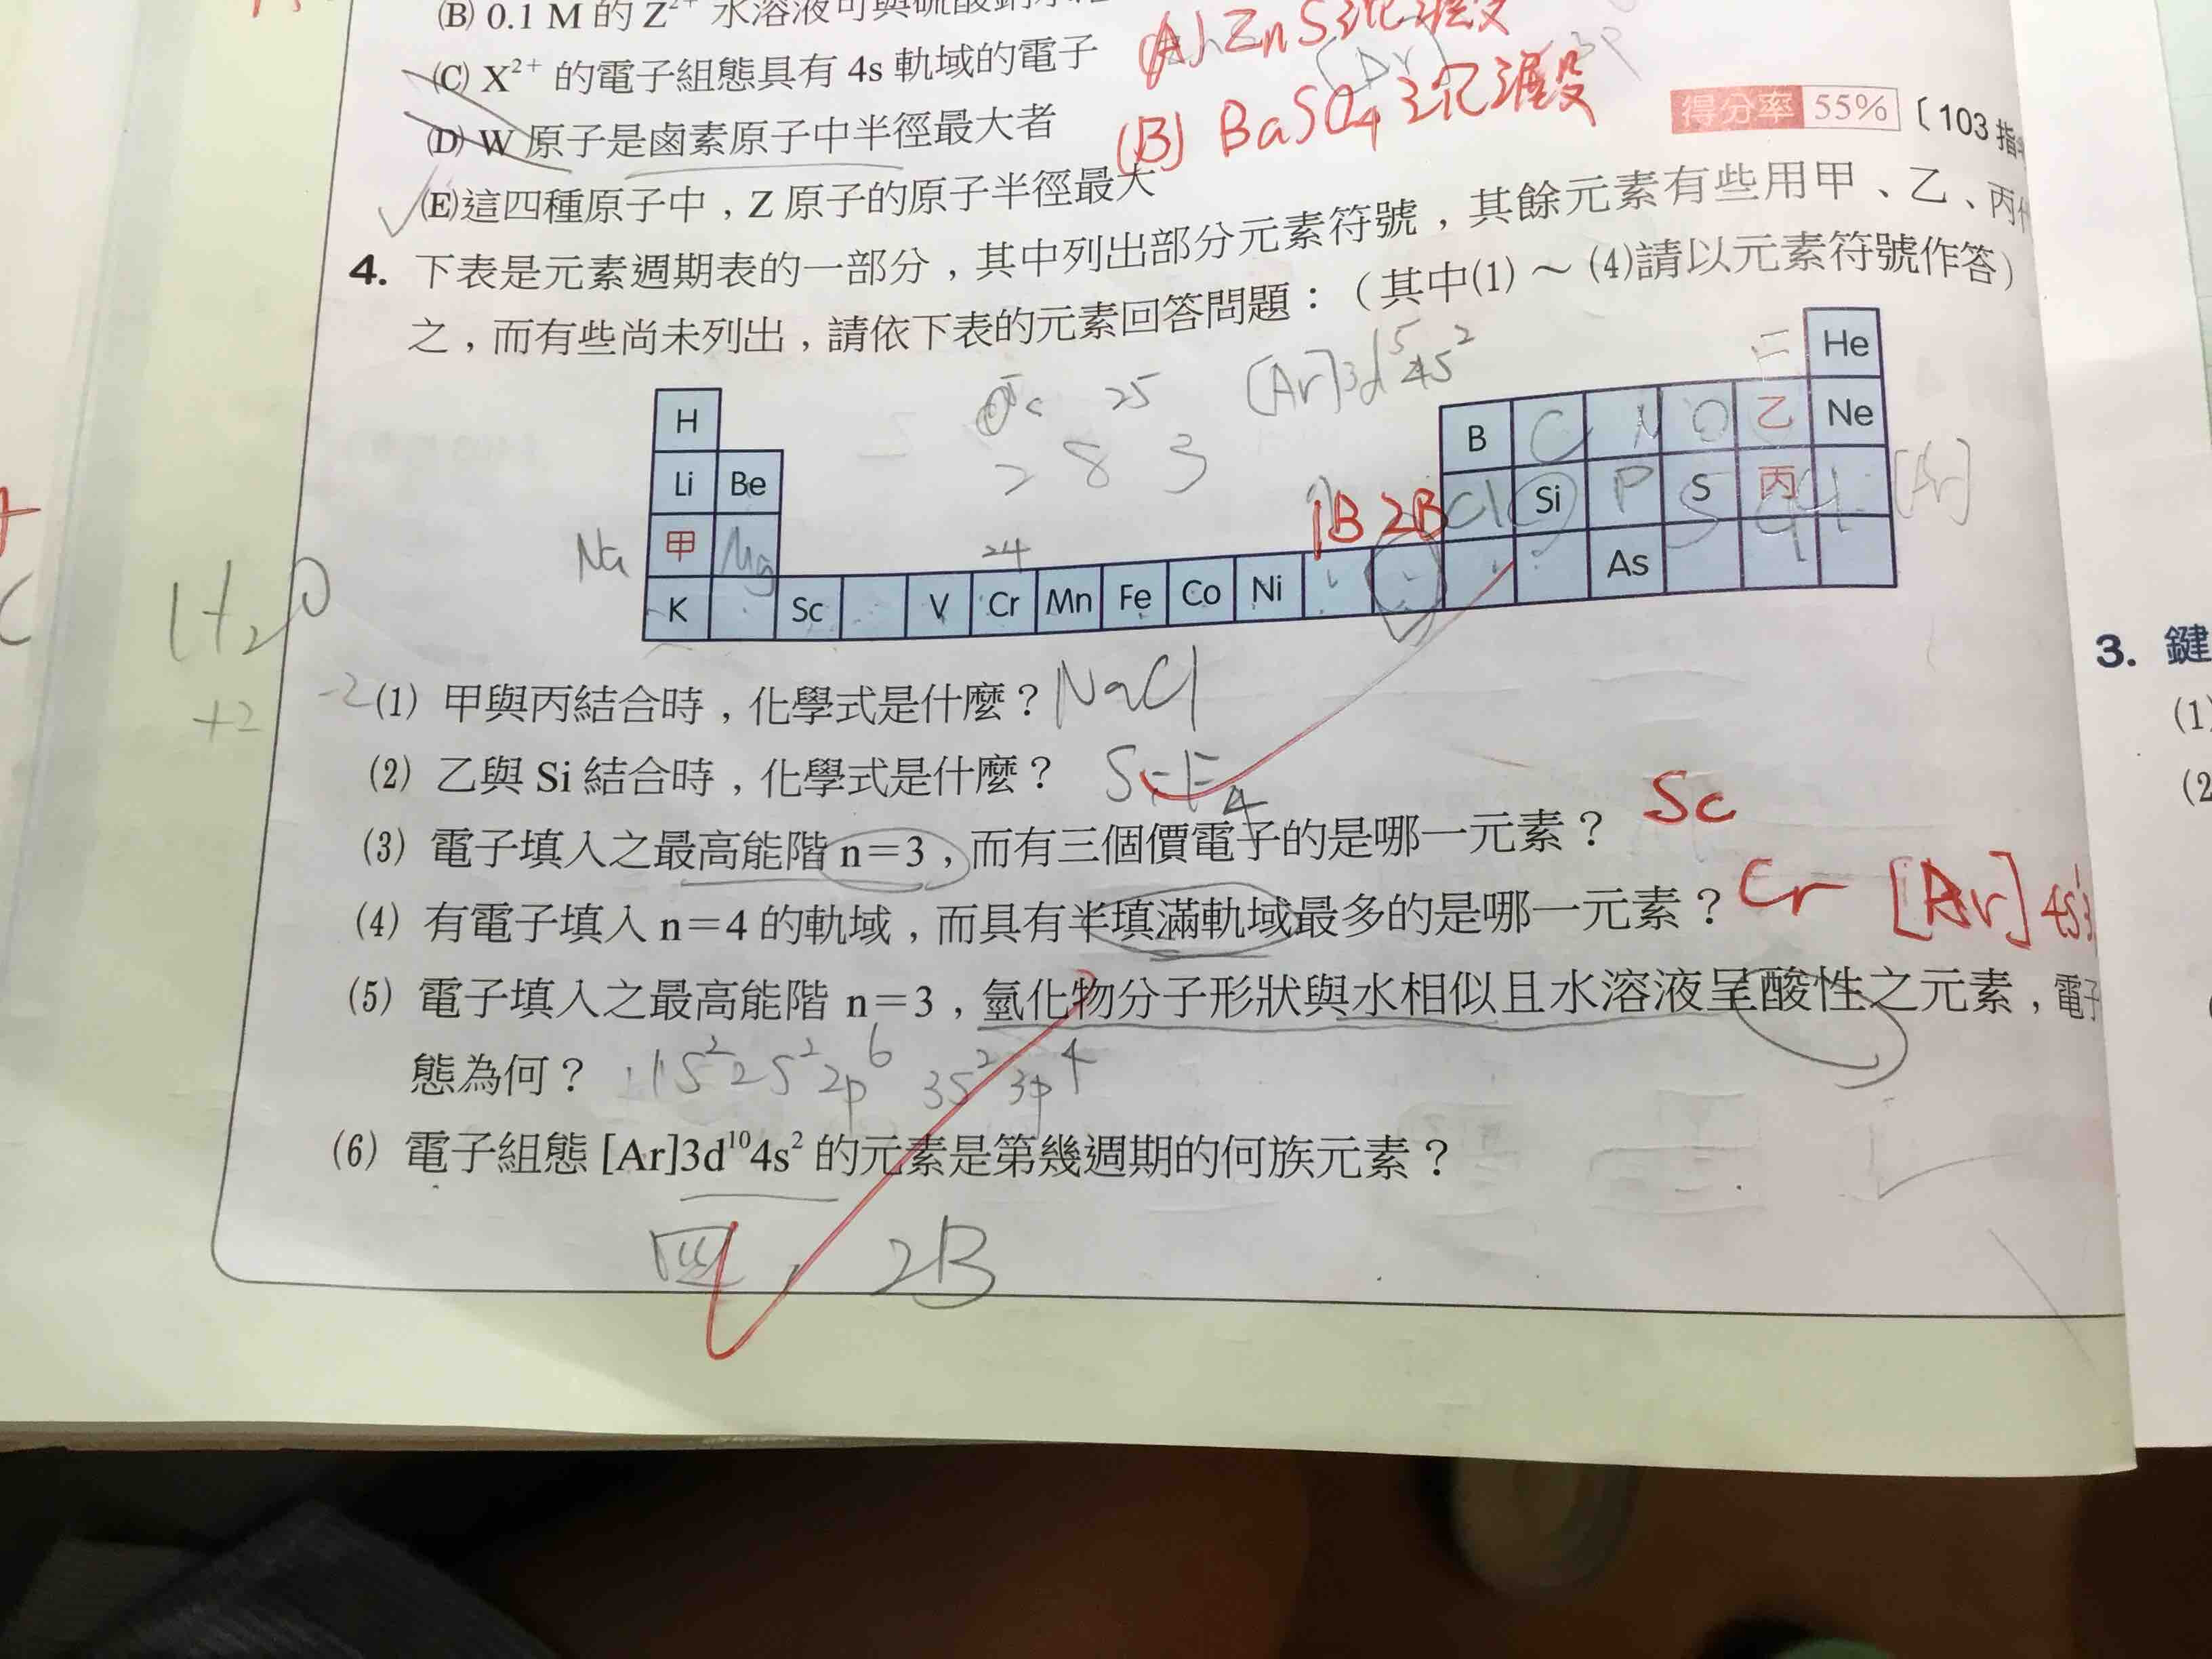 (B) 0.1 M 的 Z²⁺ 水溶液可與硫酸鈉
(C) X²⁺ 的電子組態具有 4s 軌域的電子
(A) ZnS 沉澱
(D) W 原子是鹵素原子中半徑最大者
(B) BaSO₄ 沉澱
得分率 55% 〔103 指
(E)這四種原子中，Z 原子的原子半徑最大
4. 下表是元素週期表的一部分，其中列出部分元素符號，其餘元素有些用甲、乙、丙
之，而有些尚未列出，請依下表的元素回答問題：（其中(1) ～ (4)請以元素符號作答）
25 [Ar]3d⁵4s²
2 8 3
He
H B C N O 乙 Ne
Li Be Si P S 丙 [Ar]
1B 2B
Na 甲 Mg
24
K Sc V Cr Mn Fe Co Ni As
H₂O
+2 -2
(1) 甲與丙結合時，化學式是什麼？ NaCl
(2) 乙與 Si 結合時，化學式是什麼？ SiF₄
(3) 電子填入之最高能階 n＝3，而有三個價電子的是哪一元素？ Sc
(4) 有電子填入 n＝4 的軌域，而具有半填滿軌域最多的是哪一元素？ Cr [Ar] 4s¹3
(5) 電子填入之最高能階 n＝3，氫化物分子形狀與水相似且水溶液呈酸性之元素，電子
態為何？ 1s²2s²2p⁶ 3s²3p⁴
(6) 電子組態 [Ar]3d¹⁰4s² 的元素是第幾週期的何族元素？
四, 2B
3. 鍵
(1)
(2